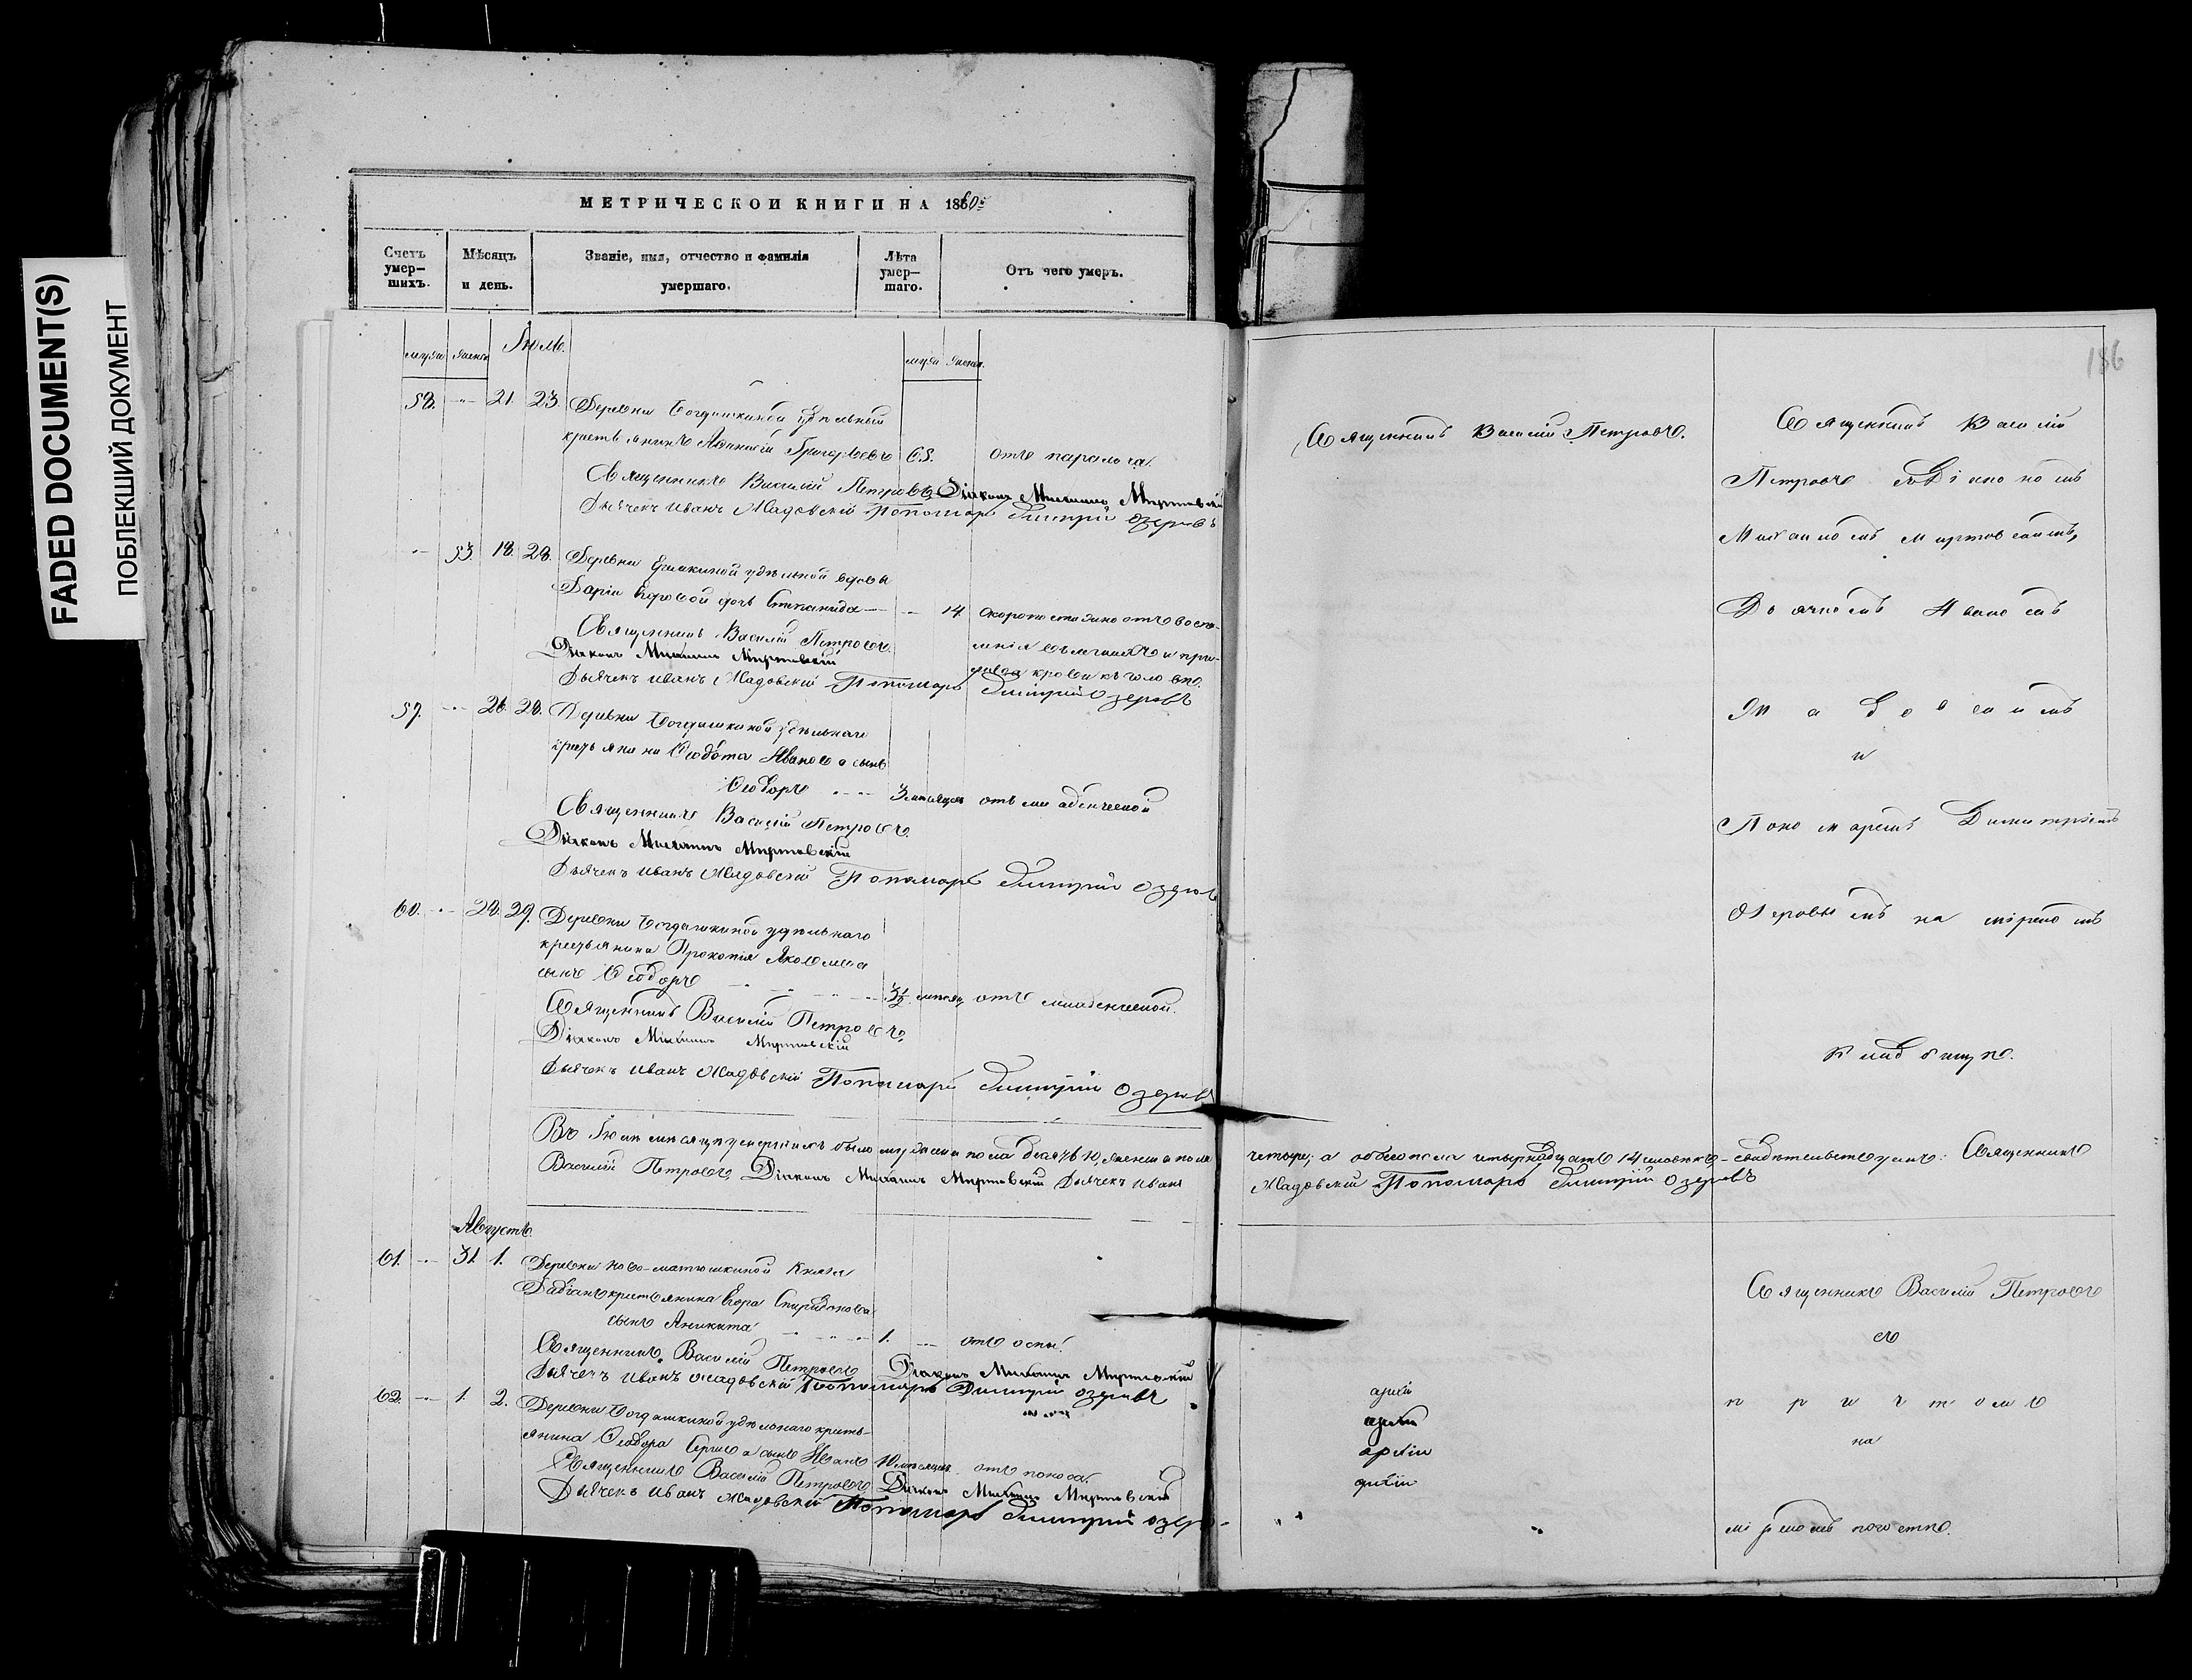 FADED DOCUMENT(S)
ПОБЛЕКШИЙ ДОКУМЕНТ
МЕТРИЧЕСКОЙ КНИГИ НА 1860
Счетъ умер-
шихъ.
Мѣсяцъ
и день.
Званіе, имя, отчество и фамилія
умершаго.
Лѣта
умер-
шаго.
Отъ чего умеръ.
186
Іюль.
58. 21. 23. Деревни Богдашкиной удѣльный
крестьянинъ Григорьевъ 65. отъ паралича.
Священникъ Василій Петровъ Діаконъ Михаилъ Миртовскій
Дьячекъ Иванъ Надовскій Пономарь Димитрій Озеровъ
53. 18. 28. Деревни удѣльной вдовы
Даріи дочь Степанида 14. скоропостижно отъ воспа-
ленія въ легкихъ и при-
лива крови къ головѣ.
Священникъ Василій Петровъ
Діаконъ Михаилъ Миртовскій
Дьячекъ Иванъ Надовскій Пономарь Димитрій Озеровъ
59. 26. 28. Деревни Богдашкиной удѣльнаго
крестьянина Иванова сынъ
Ѳеодоръ 3 мѣсяцевъ отъ младенческой
Священникъ Василій Петровъ
Діаконъ Михаилъ Миртовскій
Дьячекъ Иванъ Надовскій Пономарь Димитрій Озеровъ
60. 28. 29. Деревни Богдашкиной удѣльнаго
крестьянина Прокопія Яковлева
сынъ Ѳеодоръ 3½ мѣсяц. отъ младенческой.
Священникъ Василій Петровъ
Діаконъ Михаилъ Миртовскій
Дьячекъ Иванъ Надовскій Пономарь Димитрій Озеровъ
Въ Іюлѣ мѣсяцѣ умершихъ было мужеска пола десять 10, женска пола
четыре; а обоего пола четырнадцать 14 человѣкъ свидѣтельствуемъ: Священникъ
Василій Петровъ, Діаконъ Михаилъ Миртовскій Дьячекъ Иванъ
Надовскій Пономарь Димитрій Озеровъ
Августъ.
61. 31. 1. Деревни Ново-матюшкиной Князя
крестьянина Егора Спиридонова
сынъ Аникита 1. отъ оспы.
Священникъ Василій Петровъ Діаконъ Михаилъ Миртовскій
Дьячекъ Иванъ Надовскій Пономарь Димитрій Озеровъ
62. 1. 2. Деревни Богдашкиной удѣльнаго кресть-
янина Ѳеодора Сергѣева сынъ Иванъ 10 мѣсяцевъ отъ поноса.
Священникъ Василій Петровъ Діаконъ Михаилъ Миртовскій
Дьячекъ Иванъ Надовскій Пономарь Димитрій Озеровъ
Священникъ Василій Петровъ.
Священникъ Василій
Петровъ съ Діакономъ
Михаиломъ Миртовскимъ,
Дьячкомъ Иваномъ
Надовскимъ
и
Пономаремъ Димитріемъ
Озеровымъ на мірскомъ
кладбищѣ.
Священникъ Василій Петровъ
съ
причтомъ
на
мірскомъ погостѣ.